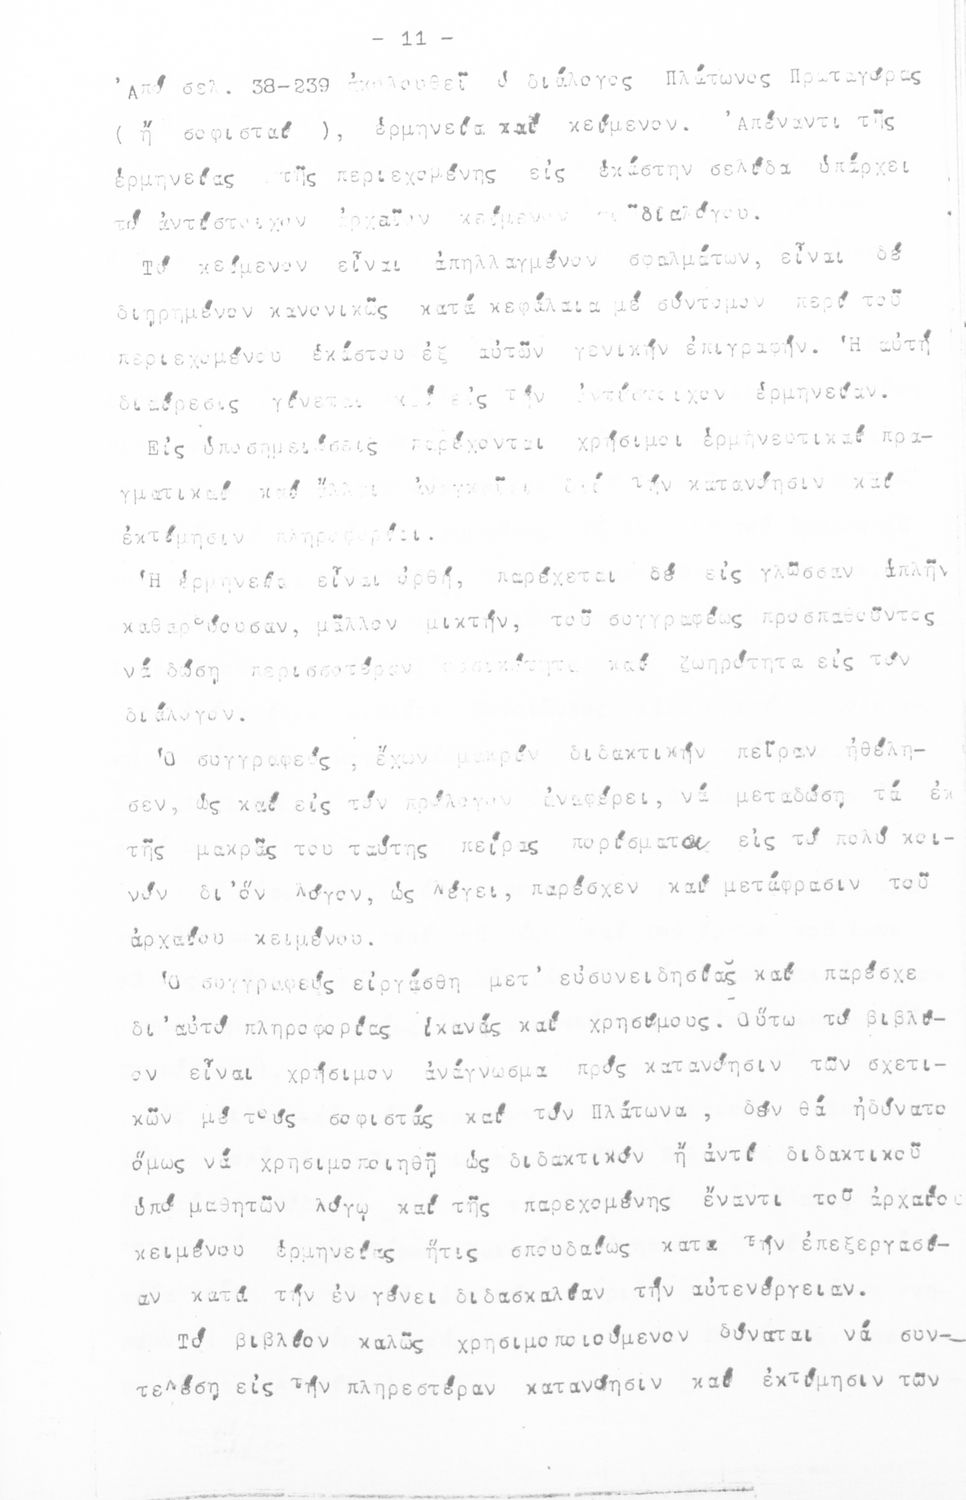 - 11 -
Ἀπό σελ. 38-239 ἀκολουθεῖ ὁ διάλογος Πλάτωνος Πρωταγόρας
( ἤ σοφισταί ), ἑρμηνεία καί κείμενον. Ἀπέναντι τῆς
ἑρμηνείας τῆς περιεχομένης εἰς ἑκάστην σελίδα ὑπάρχει
τό ἀντίστοιχον ἀρχαῖον κείμενον τοῦ διαλόγου.
Τό κείμενον εἶναι ἀπηλλαγμένον σφαλμάτων, εἶναι δέ
διῃρημένον κανονικῶς κατά κεφάλαια μέ σύντομον περί τοῦ
περιεχομένου ἑκάστου ἐξ αὐτῶν γενικήν ἐπιγραφήν. Ἡ αὐτή
διαίρεσις γίνεται καί εἰς τήν ἀντίστοιχον ἑρμηνείαν.
Εἰς ὑποσημειώσεις παρέχονται χρήσιμοι ἑρμηνευτικαί πρα-
γματικαί καί ἄλλαι ἀναγκαῖαι διά τήν κατανόησιν καί
ἐκτίμησιν πληροφορίαι.
Ἡ ἑρμηνεία εἶναι ὀρθή, παρέχεται δέ εἰς γλῶσσαν ἁπλῆν
καθαρεύουσαν, μᾶλλον μικτήν, τοῦ συγγραφέως προσπαθοῦντος
νά δώσῃ περισσοτέραν φυσικότητα καί ζωηρότητα εἰς τόν
διάλογον.
Ὁ συγγραφεύς , ἔχων μακράν διδακτικήν πεῖραν ἠθέλη-
σεν, ὡς καί εἰς τόν πρόλογον ἀναφέρει, νά μεταδώσῃ τά ἐκ
τῆς μακρᾶς του ταύτης πείρας πορίσματα εἰς τό πολύ κοι-
νόν δι'ὅν λόγον, ὡς λέγει, παρέσχεν καί μετάφρασιν τοῦ
ἀρχαίου κειμένου.
Ὁ συγγραφεύς εἰργάσθη μετ' εὐσυνειδησίας καί παρέσχε
δι'αὐτό πληροφορίας ἱκανάς καί χρησίμους. Οὕτω τό βιβλί-
ον εἶναι χρήσιμον ἀνάγνωσμα πρός κατανόησιν τῶν σχετι-
κῶν μέ τούς σοφιστάς καί τόν Πλάτωνα , δέν θά ἠδύνατο
ὅμως νά χρησιμοποιηθῇ ὡς διδακτικόν ἤ ἀντί διδακτικοῦ
ὑπό μαθητῶν λόγῳ καί τῆς παρεχομένης ἔναντι τοῦ ἀρχαίου
κειμένου ἑρμηνείας ἥτις σπουδαίως κατα τήν ἐπεξεργασί-
αν κατά τήν ἐν γένει διδασκαλίαν τήν αὐτενέργειαν.
Τό βιβλίον καλῶς χρησιμοποιούμενον δύναται νά συν-
τελέσῃ εἰς τήν πληρεστέραν κατανόησιν καί ἐκτίμησιν τῶν